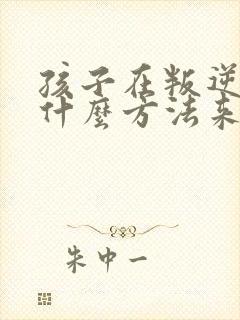 孩子在叛逆
什麼方法来
朱中一